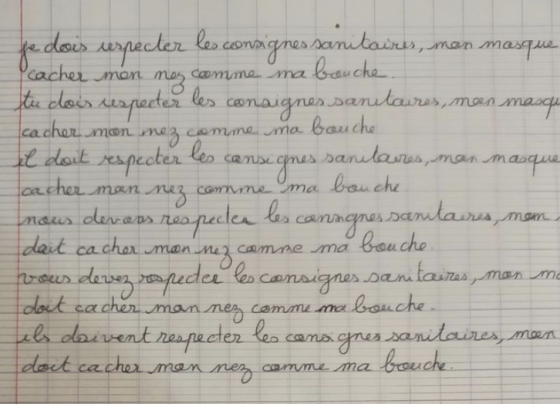 je dois respecter les consignes sanitaires, mon masque
cacher mon nez comme ma bouche.
tu dois respecter les consignes sanitaires, mon masqu
cacher mon nez comme ma bouche
il doit respecter les consignes sanitaires, mon masque
cacher mon nez comme ma bouche
nous devons respecter les consignes sanitaires, mon
doit cacher mon nez comme ma bouche.
vous devez respecter les consignes sanitaires, mon ma
doit cacher mon nez comme ma bouche.
ils doivent respecter les consignes sanitaires, mon
doit cacher mon nez comme ma bouche.